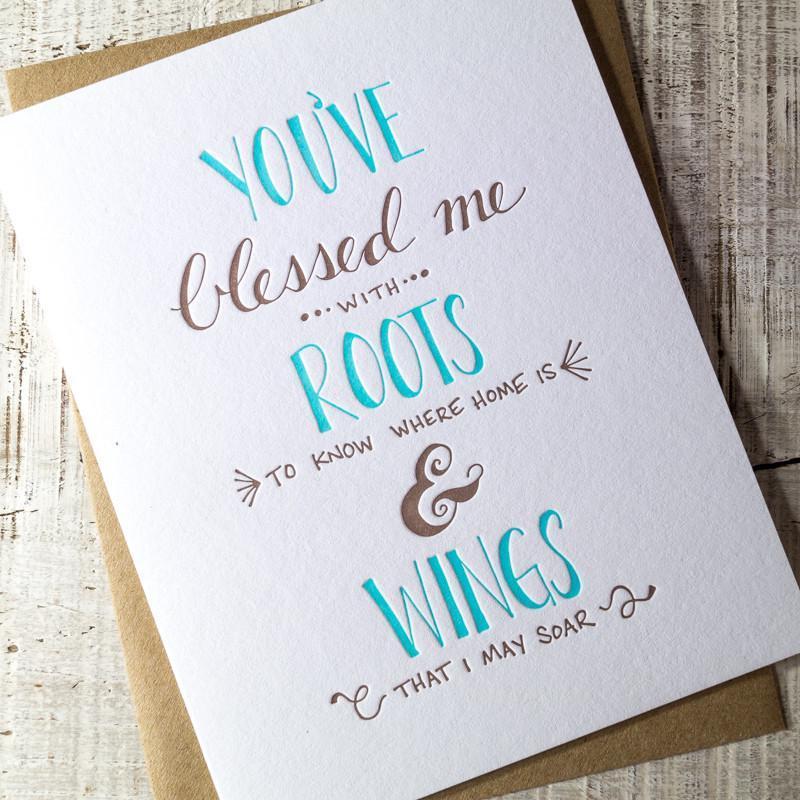 YOU'VE
blessed me
...WITH...
ROOTS
TO KNOW WHERE HOME IS
&
WINGS
THAT I MAY SOAR